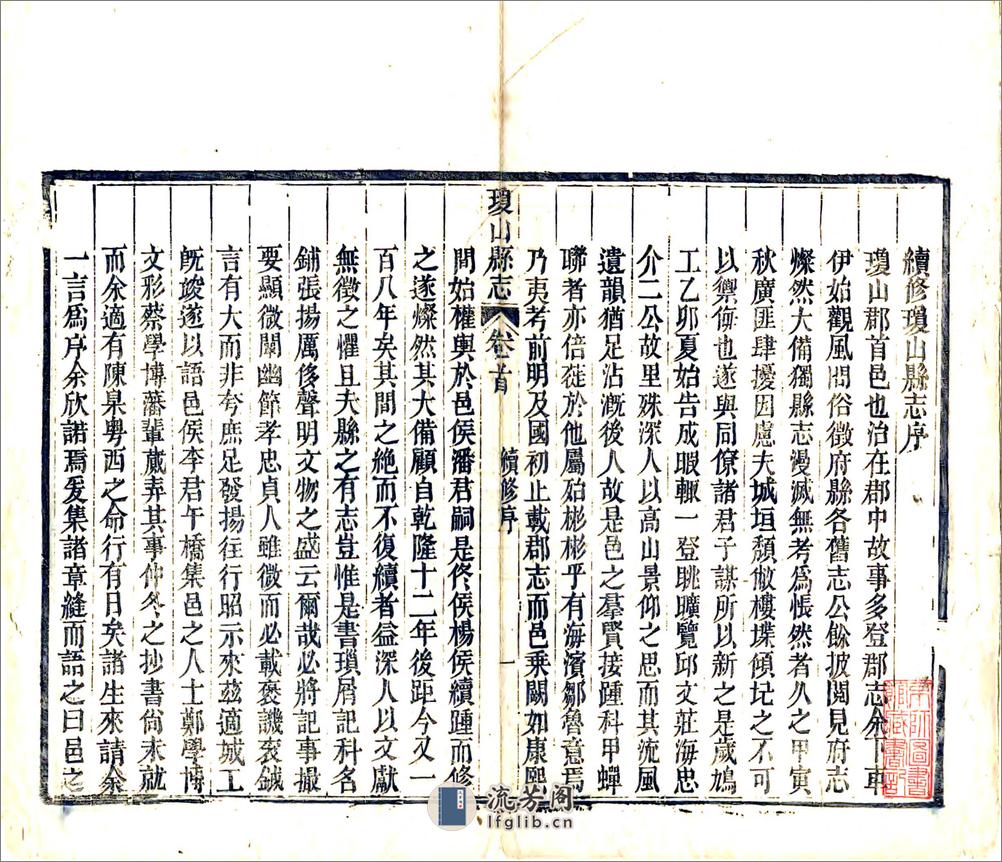 續修瓊山縣志序
瓊山郡首邑也治在郡中故事多登郡志余下車
伊始觀風問俗徵府縣各舊志公餘披閱見府志
燦然大備獨縣志漫滅無考為悵然者久之甲寅
秋廣匪肆擾因慮夫城垣頹敝樓堞傾圮之不可
以禦侮也遂與同僚諸君子謀所以新之是歲鳩
工乙卯夏始告成暇輒一登眺曠覽邱文莊海忠
介二公故里殊深人以高山景仰之思而其流風
遺韻猶足沾漑後人故是邑之羣賢接踵科甲蟬
聯者亦倍蓰於他屬始彬彬乎有海濱鄒魯意焉
乃夷考前明及國初止載郡志而邑乘闕如康熙
瓊山縣志 卷首 續修序 一
間始權輿於邑侯潘君嗣是佟侯楊侯續踵而修
之遂燦然其大備顧自乾隆十二年後距今又一
百八年矣其間之絶而不復續者益深人以文獻
無徵之懼且夫縣之有志豈惟是書瑣屑記科名
鋪張揚厲侈聲明文物之盛云爾哉必將記事撮
要顯微闡幽節孝忠貞人雖微而必載褒譏袞鉞
言有大而非夸庶足發揚往行昭示來茲適城工
旣竣遂以語邑侯李君午橋集邑之人士鄭學博
文彤蔡學博藩輩蕆弆其事仲冬之抄書尙未就
而余適有陳臬粵西之命行有日矣諸生來請余
一言爲序余欣諾焉爰集諸章縫而語之曰邑之
流芳阁
lfglib.cn